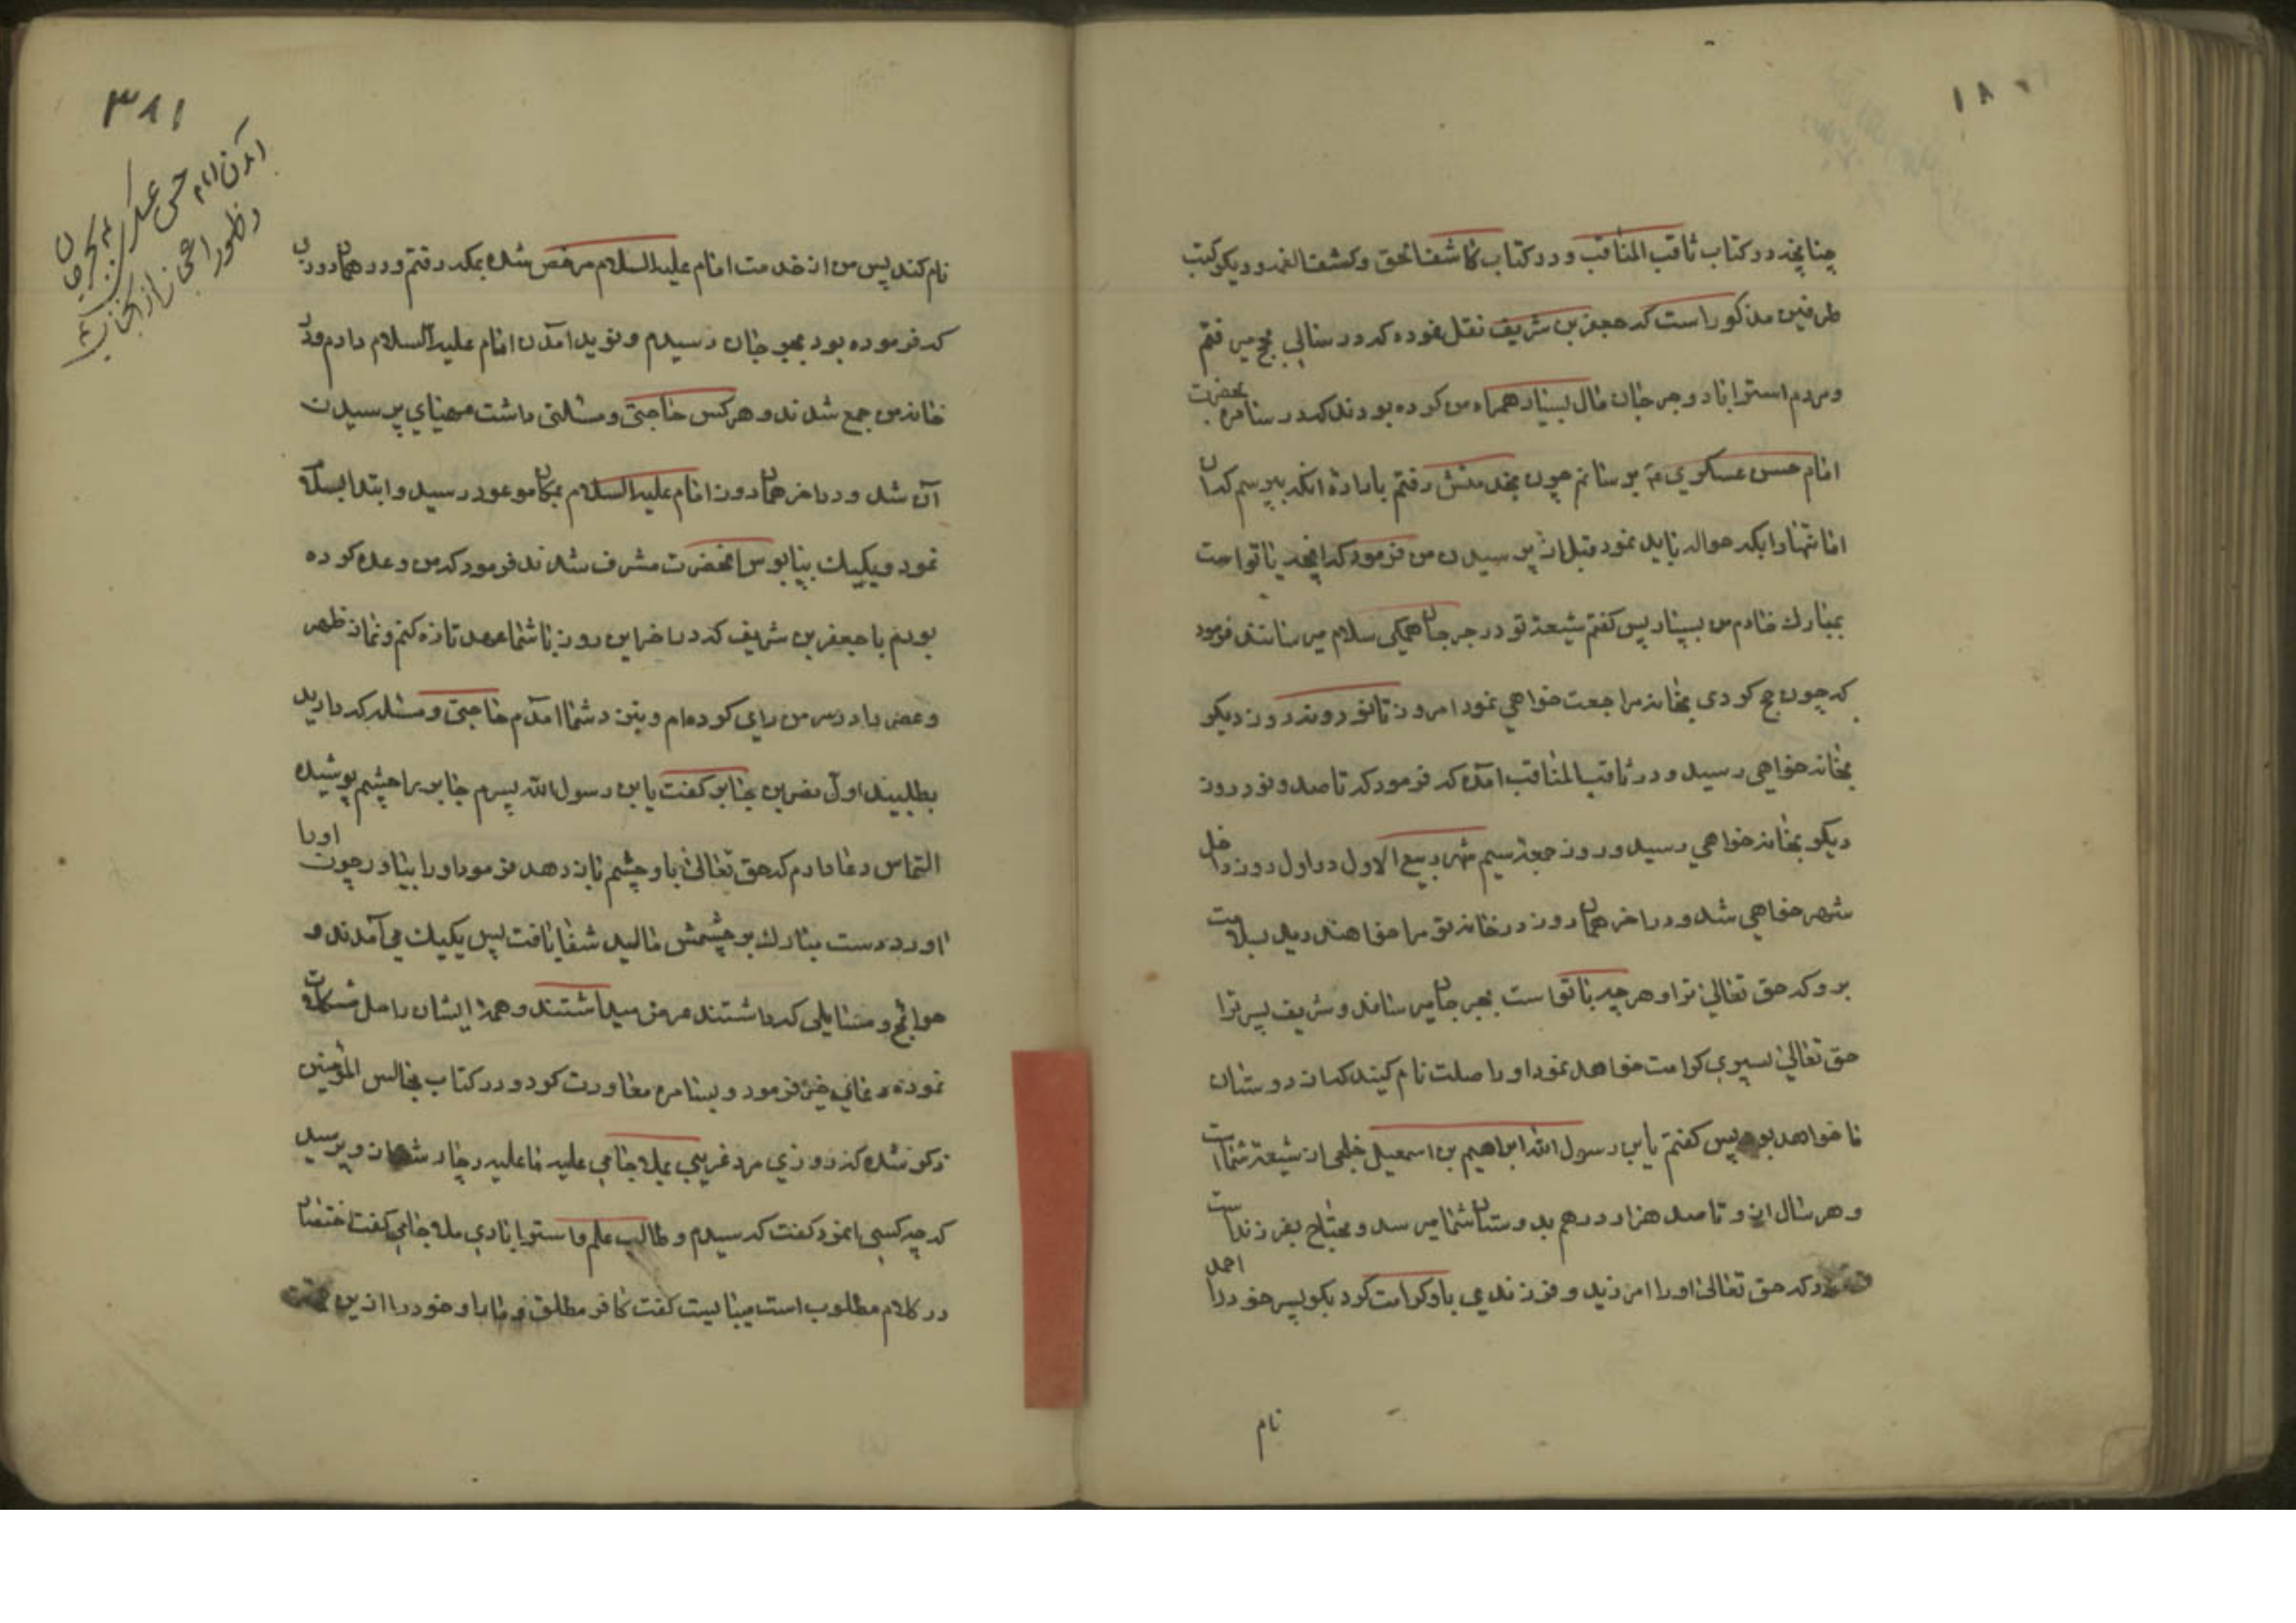 چنانچه در کتاب ثاقب المناقب و در کتاب کاشف الحق و کشف الغمه و دیکر کتب
طرفین مذکور است که جعفر بن شریف نقل نموده که در سالی بحج میرفتم
و مردم استراباد و جرجان مال بسیار همراه من کرده بودند که در سامره بحضرت
امام حسن عسکری ع برسانم چون بخدمتش رفتم باراده انکه بپرسم که ان
امانتها را بکه حواله باید نمود قبل از پرسیدن من فرمود که انچه با تو است
بمبارك خادم من بسپار پس کفتم شیعه تو در جرجان همکی سلام میرسانند فرمود
که چون حج کردی بخانه مراجعت خواهی نمود امروز تا نود روز دیکر
بخانه خواهی رسید و در ثاقب المناقب امده که فرمود که تا صد و نود روز
دیکر بخانه خواهی رسید و روز جمعه سیم شهر ربیع الاول در اول روز داخل
شهر خواهی شد و در اخر همان روز در خانه تو مرا خواهند دید بسلامت
برو که حق تعالی ترا و هر چه با تو است بجرجان میرساند و شریف پسر ترا
حق تعالی پسری کرامت خواهد نمود او را صلت نام کنید که از دوستان
ما خواهد بود پس کفتم یابن رسول الله ابراهیم بن اسمعیل خلجی از شیعه شما است
و هر سال از او تا صد هزار درهم بدوستان شما میرسد و محتاج بفرزند است
فرمود که حق تعالی او را امرزید و فرزندی باو کرامت کرد بکو پسر خود را احمد
نام
۳۸۱
آمدن امام حسن عسکری ع بجرجان
و ظهور اعجاز از آنجناب ع
نام کند پس من از خدمت امام علیه السلام مرخص شده بمکه رفتم و در همان روزی
که فرموده بود بجرجان رسیدم و نوید امدن امام علیه السلام دادم و در
خانه من جمع شدند و هرکس حاجتی و مسئلتی داشت مهیای پرسیدن
آن شد و در اخر همان روز امام علیه السلام بمکان موعود رسید و ابتدا بسلام
نمود و یکیك بپابوس انحضرت مشرف شدند فرمود که من وعده کرده
بودم با جعفر بن شریف که در اخر این روز با شما عهد تازه کنم و نماز ظهر
و عصر را در سر من رای کرده‌ام و بنزد شما امدم حاجتی و مسئله که دارید
بطلبید اول نضر بن جابر کفت یابن رسول الله پسرم جابر را چشم پوشیده
التماس دعا دارم که حق تعالی باو چشم باز دهد فرمود او را بیاور چون او را
اورد دست مبارك بر چشمش مالید شفا یافت پس یکیك می‌آمدند و
حوائج و مسایلی که داشتند عرض میداشتند و همه ایشان را حل مشکلات
نموده دعای خیر فرمود و بسامره معاودت کرد و در کتاب مجالس المؤمنین
ذکر شده که روزی مرد غریبی بملا جامی علیه ما علیه دچار شد از و پرسید
که چه کسی انمرد کفت که سیدم و طالب علم و استرابادی ملا جامی کفت اختصار
در کلام مطلوب است کفت کافر مطلق